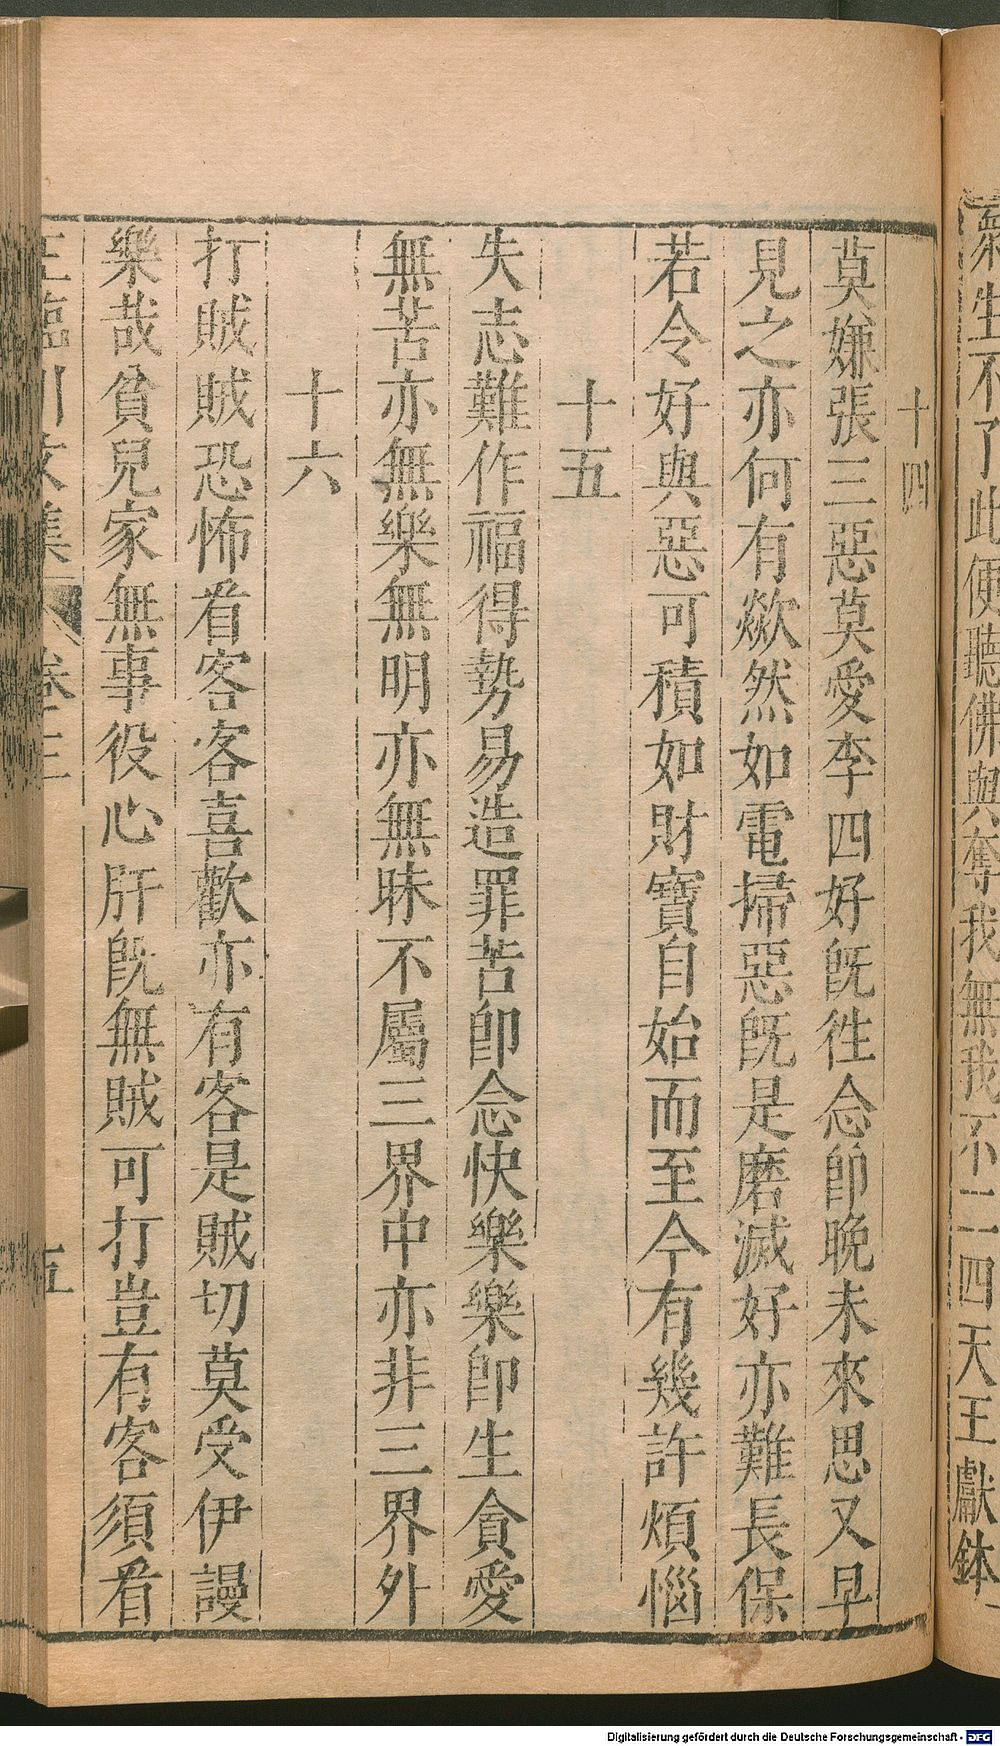 衆生不了此便聽佛與奪我無我不二四天王獻鉢
十四
莫嫌張三惡莫愛李四好旣徃念卽晚未來思又早
見之亦何有歘然如電掃惡旣是磨滅好亦難長保
若令好與惡可積如財寶自始而至今有幾許煩惱
十五
失志難作福得勢易造罪苦卽念快樂樂卽生貪愛
無苦亦無樂無明亦無昧不屬三界中亦非三界外
十六
打賊賊恐怖看客客喜歡亦有客是賊切莫受伊謾
樂哉貧兒家無事役心肝旣無賊可打豈有客須看
王臨川文集 卷三 五
Digitalisierung gefördert durch die Deutsche Forschungsgemeinschaft - DFG